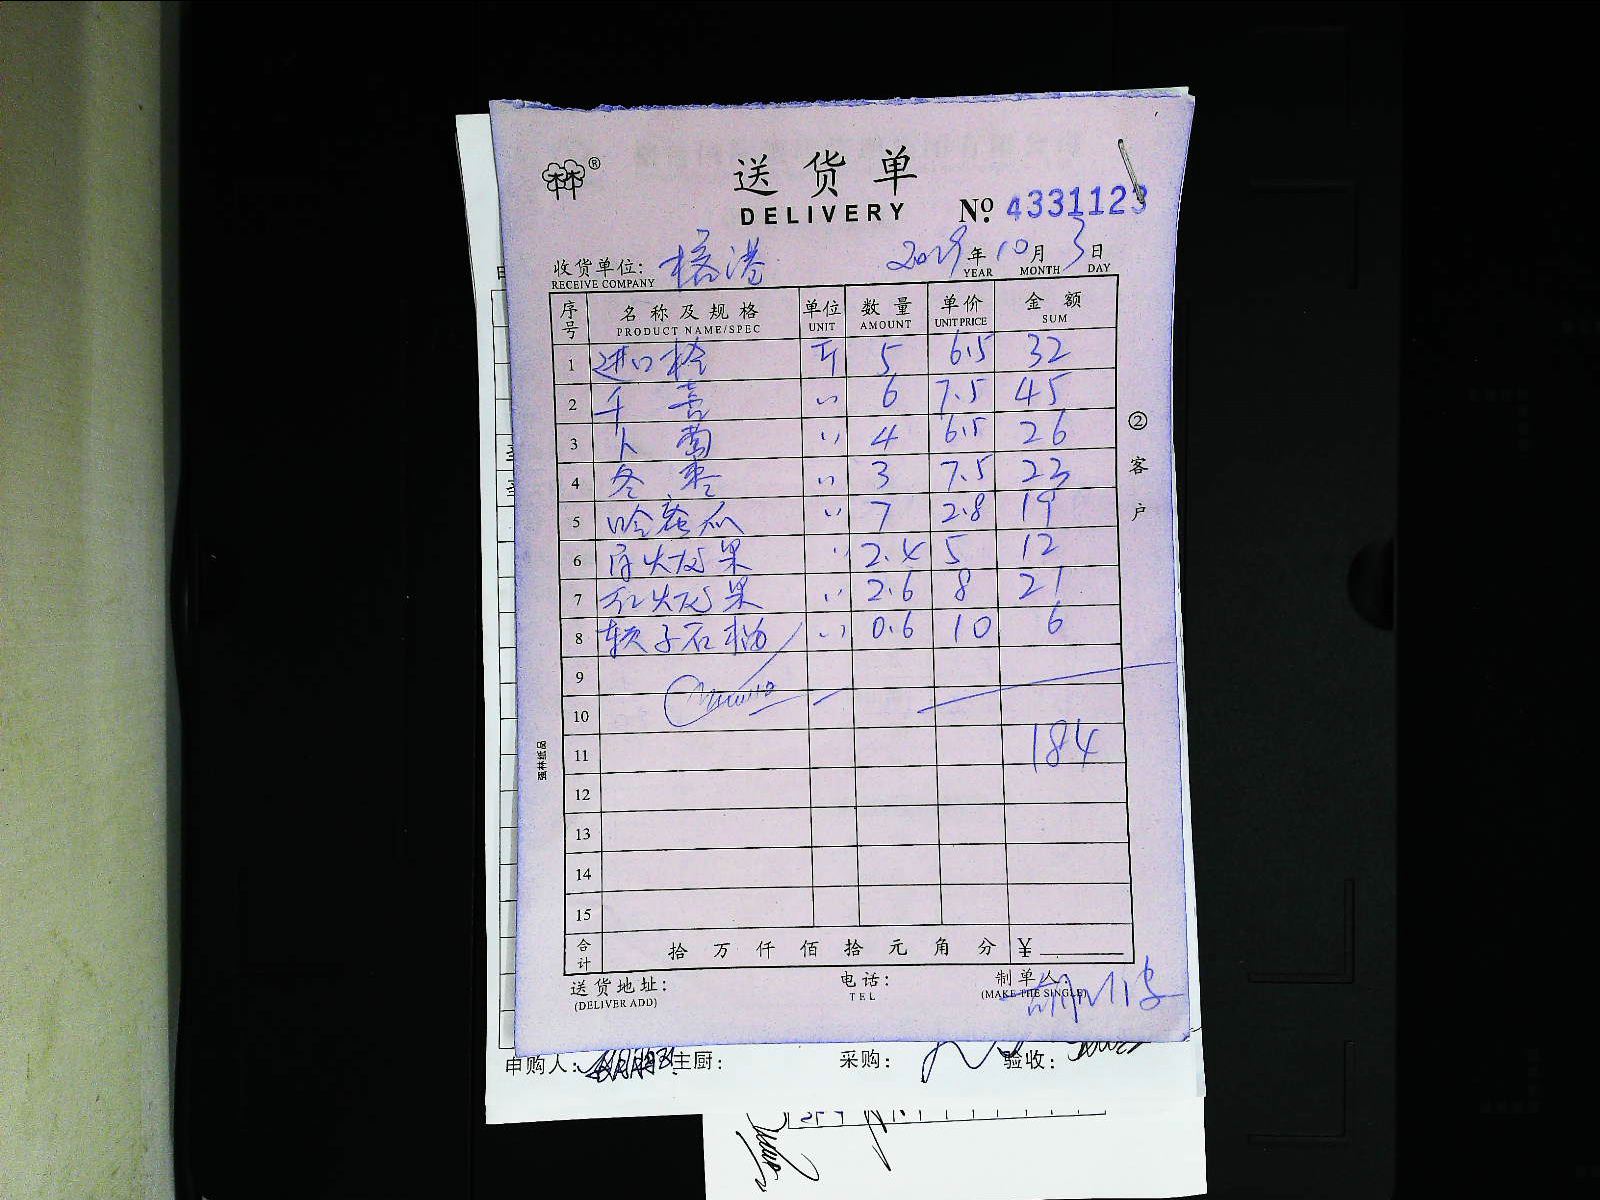 送货单
DELIVERY
№ 4331123
收货单位: 港
RECEIVE COMPANY
2029年10月3日
YEAR MONTH DAY
序号 名称及规格 单位 数量 单价 金额
PRODUCT NAME/SPEC UNIT AMOUNT UNIT PRICE SUM
1 进口柃 斤 5 6.5 32
2 千喜 〃 6 7.5 45
3 卜萄 〃 4 6.5 26
4 冬枣 〃 3 7.5 23
5 哈蜜瓜 〃 7 2.8 19
6 白火龙果 〃 2.4 5 12
7 红火龙果 〃 2.6 8 21
8 软子石榴 〃 0.6 10 6
9
10
11 184
12
13
14
15
合计 拾万仟佰拾元角分 ¥
送货地址: 电话: 制单人:
(DELIVER ADD) TEL (MAKE THE SINGLE)
②客户
强林纸品
申购人: 主厨: 采购: 验收: